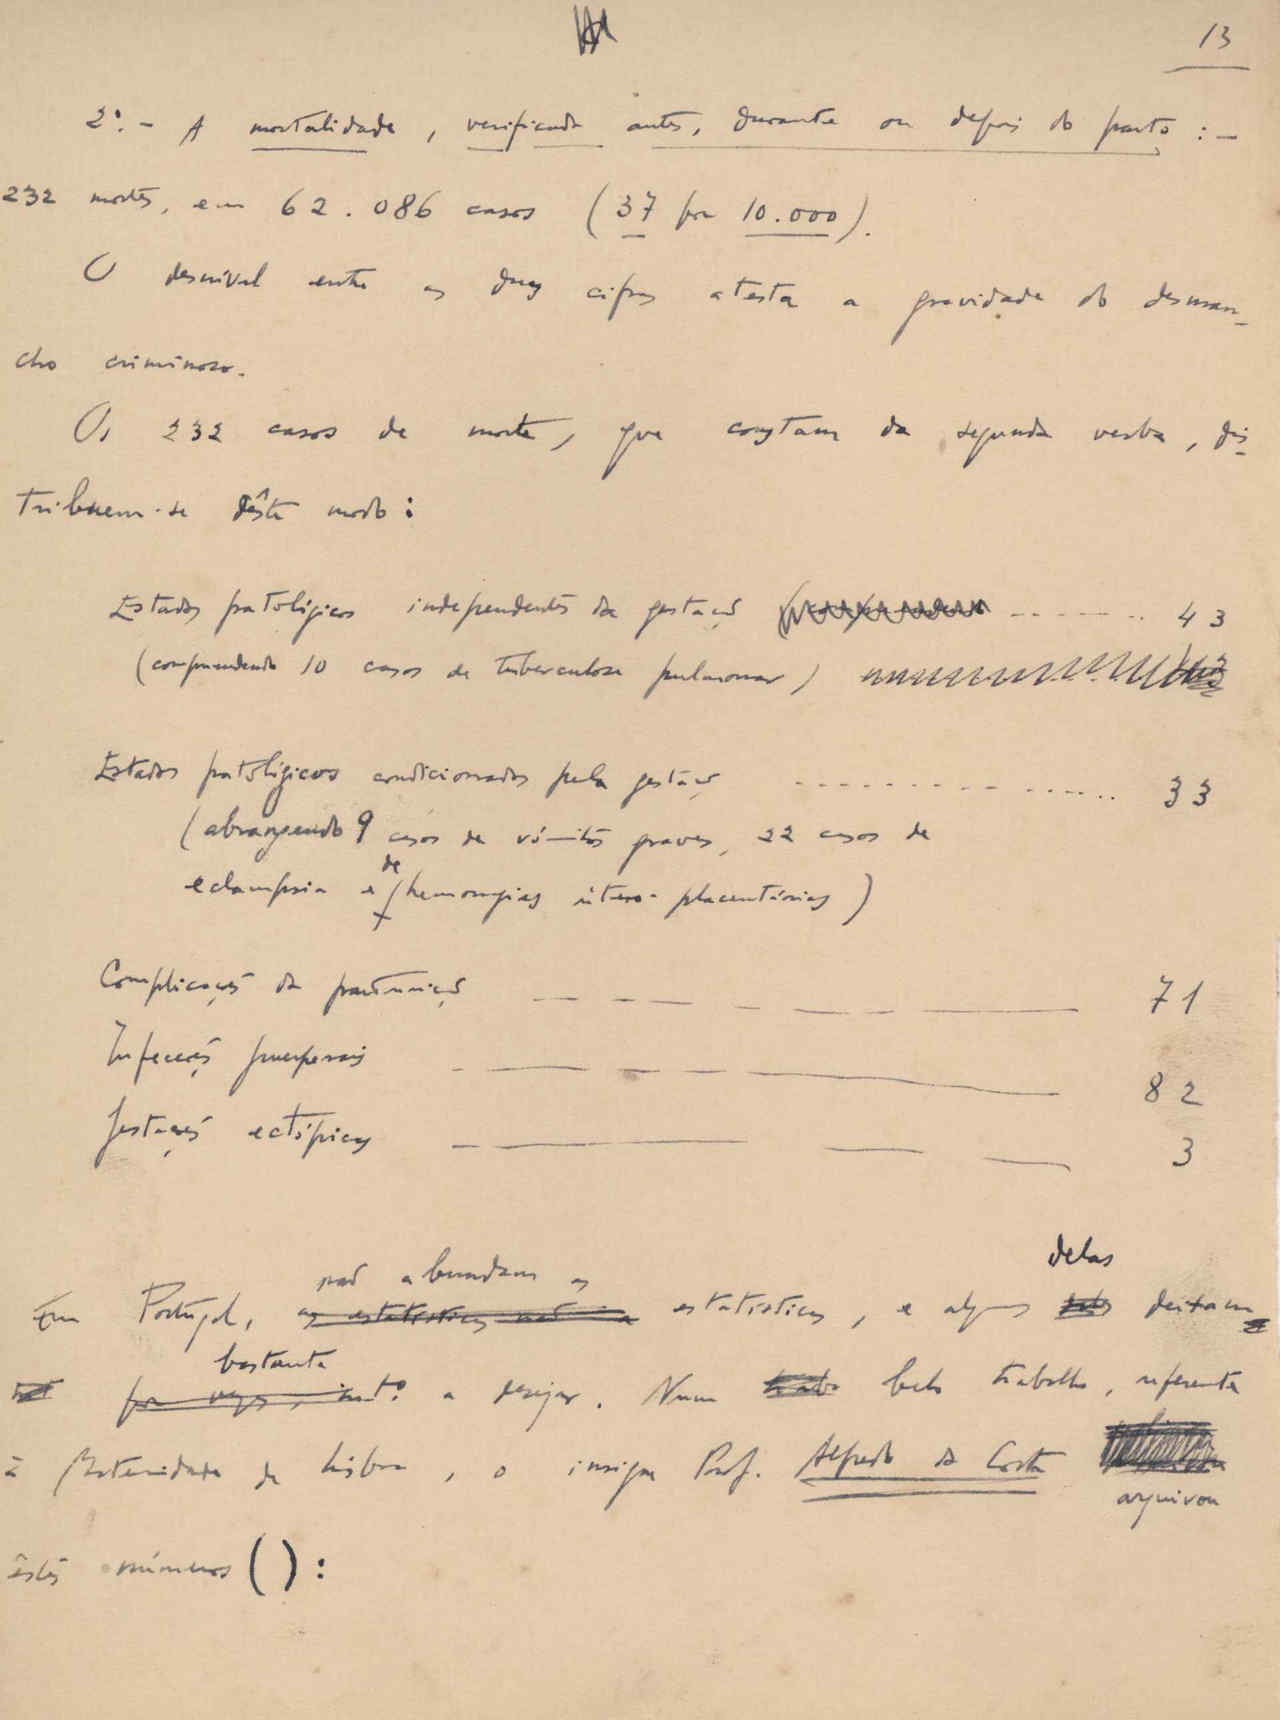 13
2º. - A mortalidade, verificada antes, durante ou depois do parto : -
232 mortes, em 62.086 casos (37 por 10.000).
O desnivel entre as duas cifras atesta a gravidade do desman-
cho criminoso.
Os 232 casos de morte, que constam da segunda verba, dis-
tribuem-se dêste modo :
Estados patológicos independentes da gestação ........ 43
(compreendendo 10 casos de tuberculose pulmonar)
Estados patológicos condicionados pela gestação ............... 33
(abrangendo 9 casos de vómitos graves, 22 casos de
de
eclampsia e hemorragias útero-placentárias)
Complicações da parturição — — — — — — 71
Infecções puerperais — — — — 82
Gestações ectópicas — — — 3
não abundam as delas
Em Portugal, as estatisticas não estatisticas, e algumas deixam
bastante
por vezes, muito a desejar. Num belo trabalho, referente
à Maternidade de Lisboa, o insigne Prof. Alfredo da Costa
arquivou
êstes números ( ) :